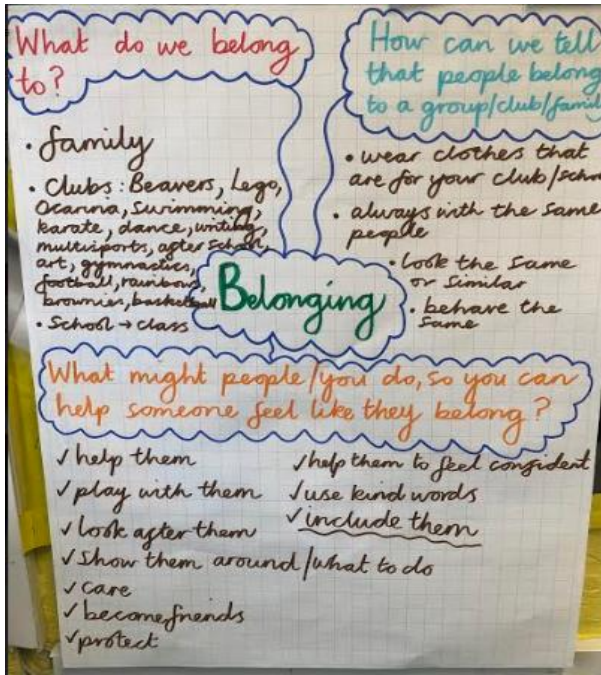 What do we belong
to?
• family
• Clubs: Beavers, Lego,
Ocarina, Swimming,
karate, dance, writing,
multisports, after school,
art, gymnastics,
football, rainbows,
brownies, basketball
• School → class
How can we tell
that people belong
to a group/club/family
• wear clothes that
are for your club/school
• always with the same
people
• look the same
or similar
• behave the
same
Belonging
What might people/you do, so you can
help someone feel like they belong?
✓ help them
✓ play with them
✓ look after them
✓ Show them around/what to do
✓ care
✓ become friends
✓ protect
✓ help them to feel confident
✓ use kind words
✓ include them